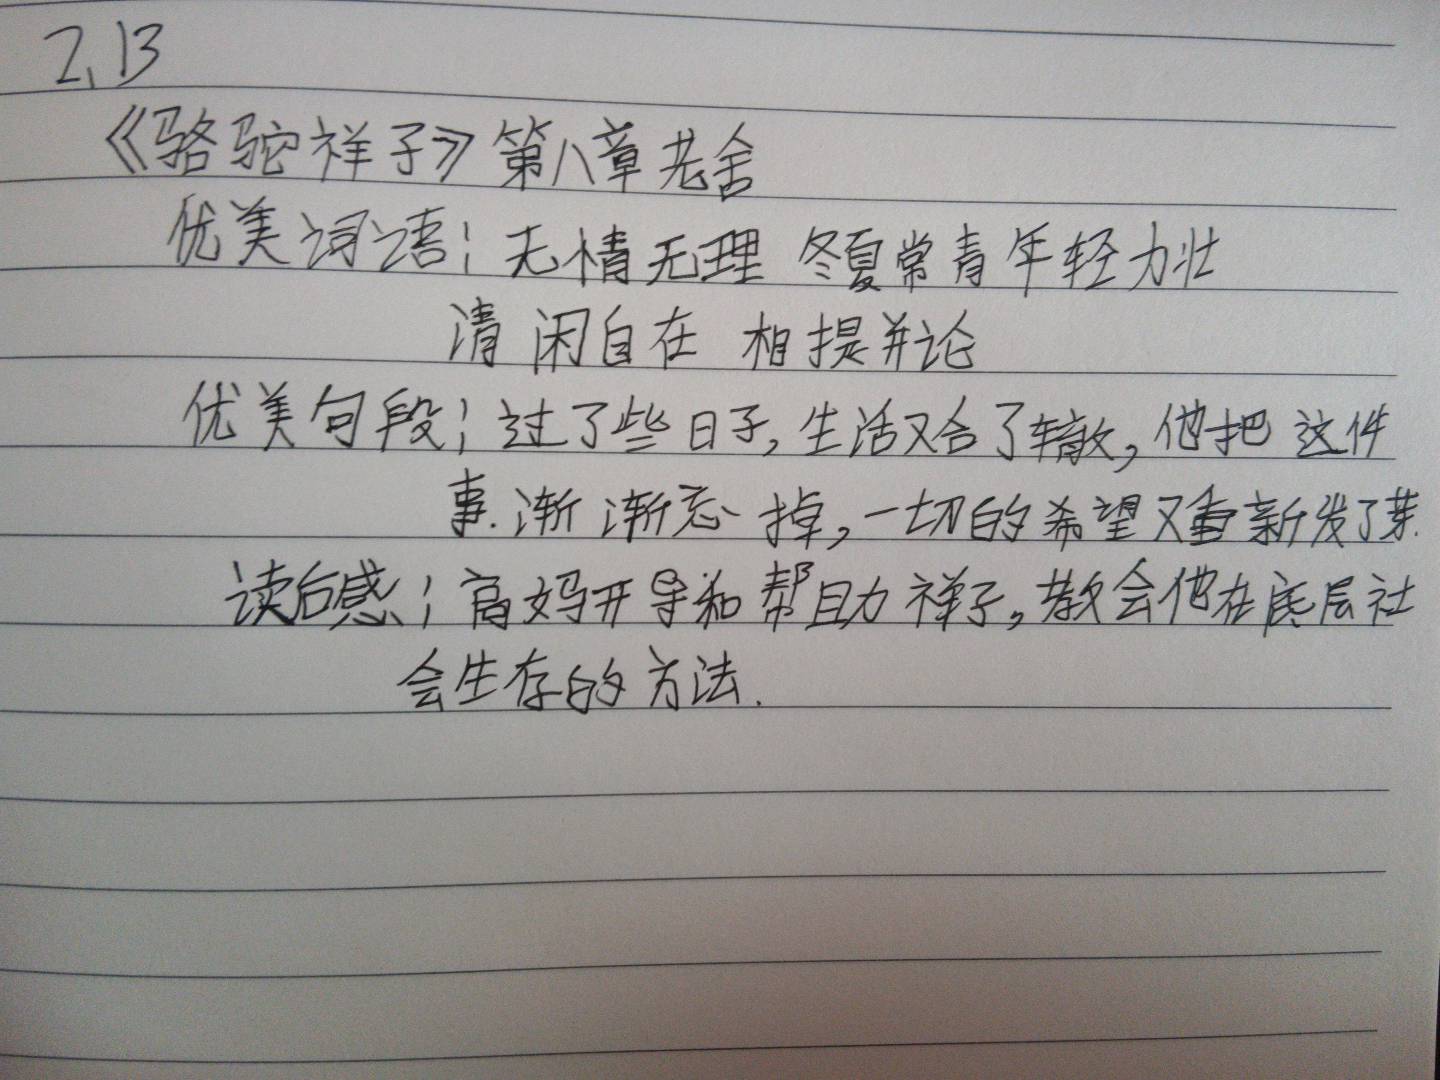 2.13
《骆驼祥子》第八章老舍
优美词语；无情无理 冬夏常青年轻力壮
清闲自在 相提并论
优美句段；过了些日子，生活又合了辙，他把这件
事.渐渐忘掉，一切的希望又重新发了芽.
读后感；高妈开导和帮助祥子，教会他在底层社
会生存的方法.